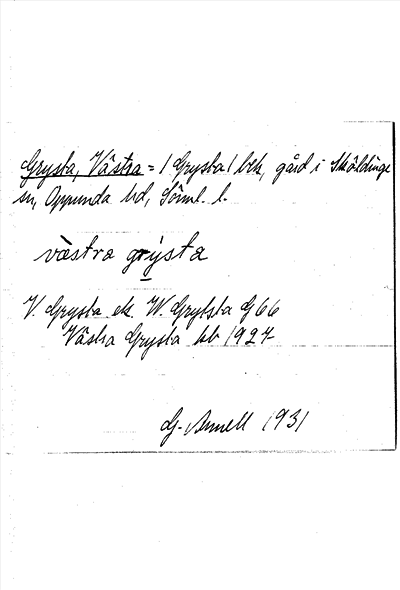 Grysta, Västra = / Grysta / bek, gård i Sköldinge
sn, Oppunda hd, Sörml. l.
västra grysta
V. Grysta ek. W. Grytsta G 66
Västra Grysta kb 1927
G. Annell 1931